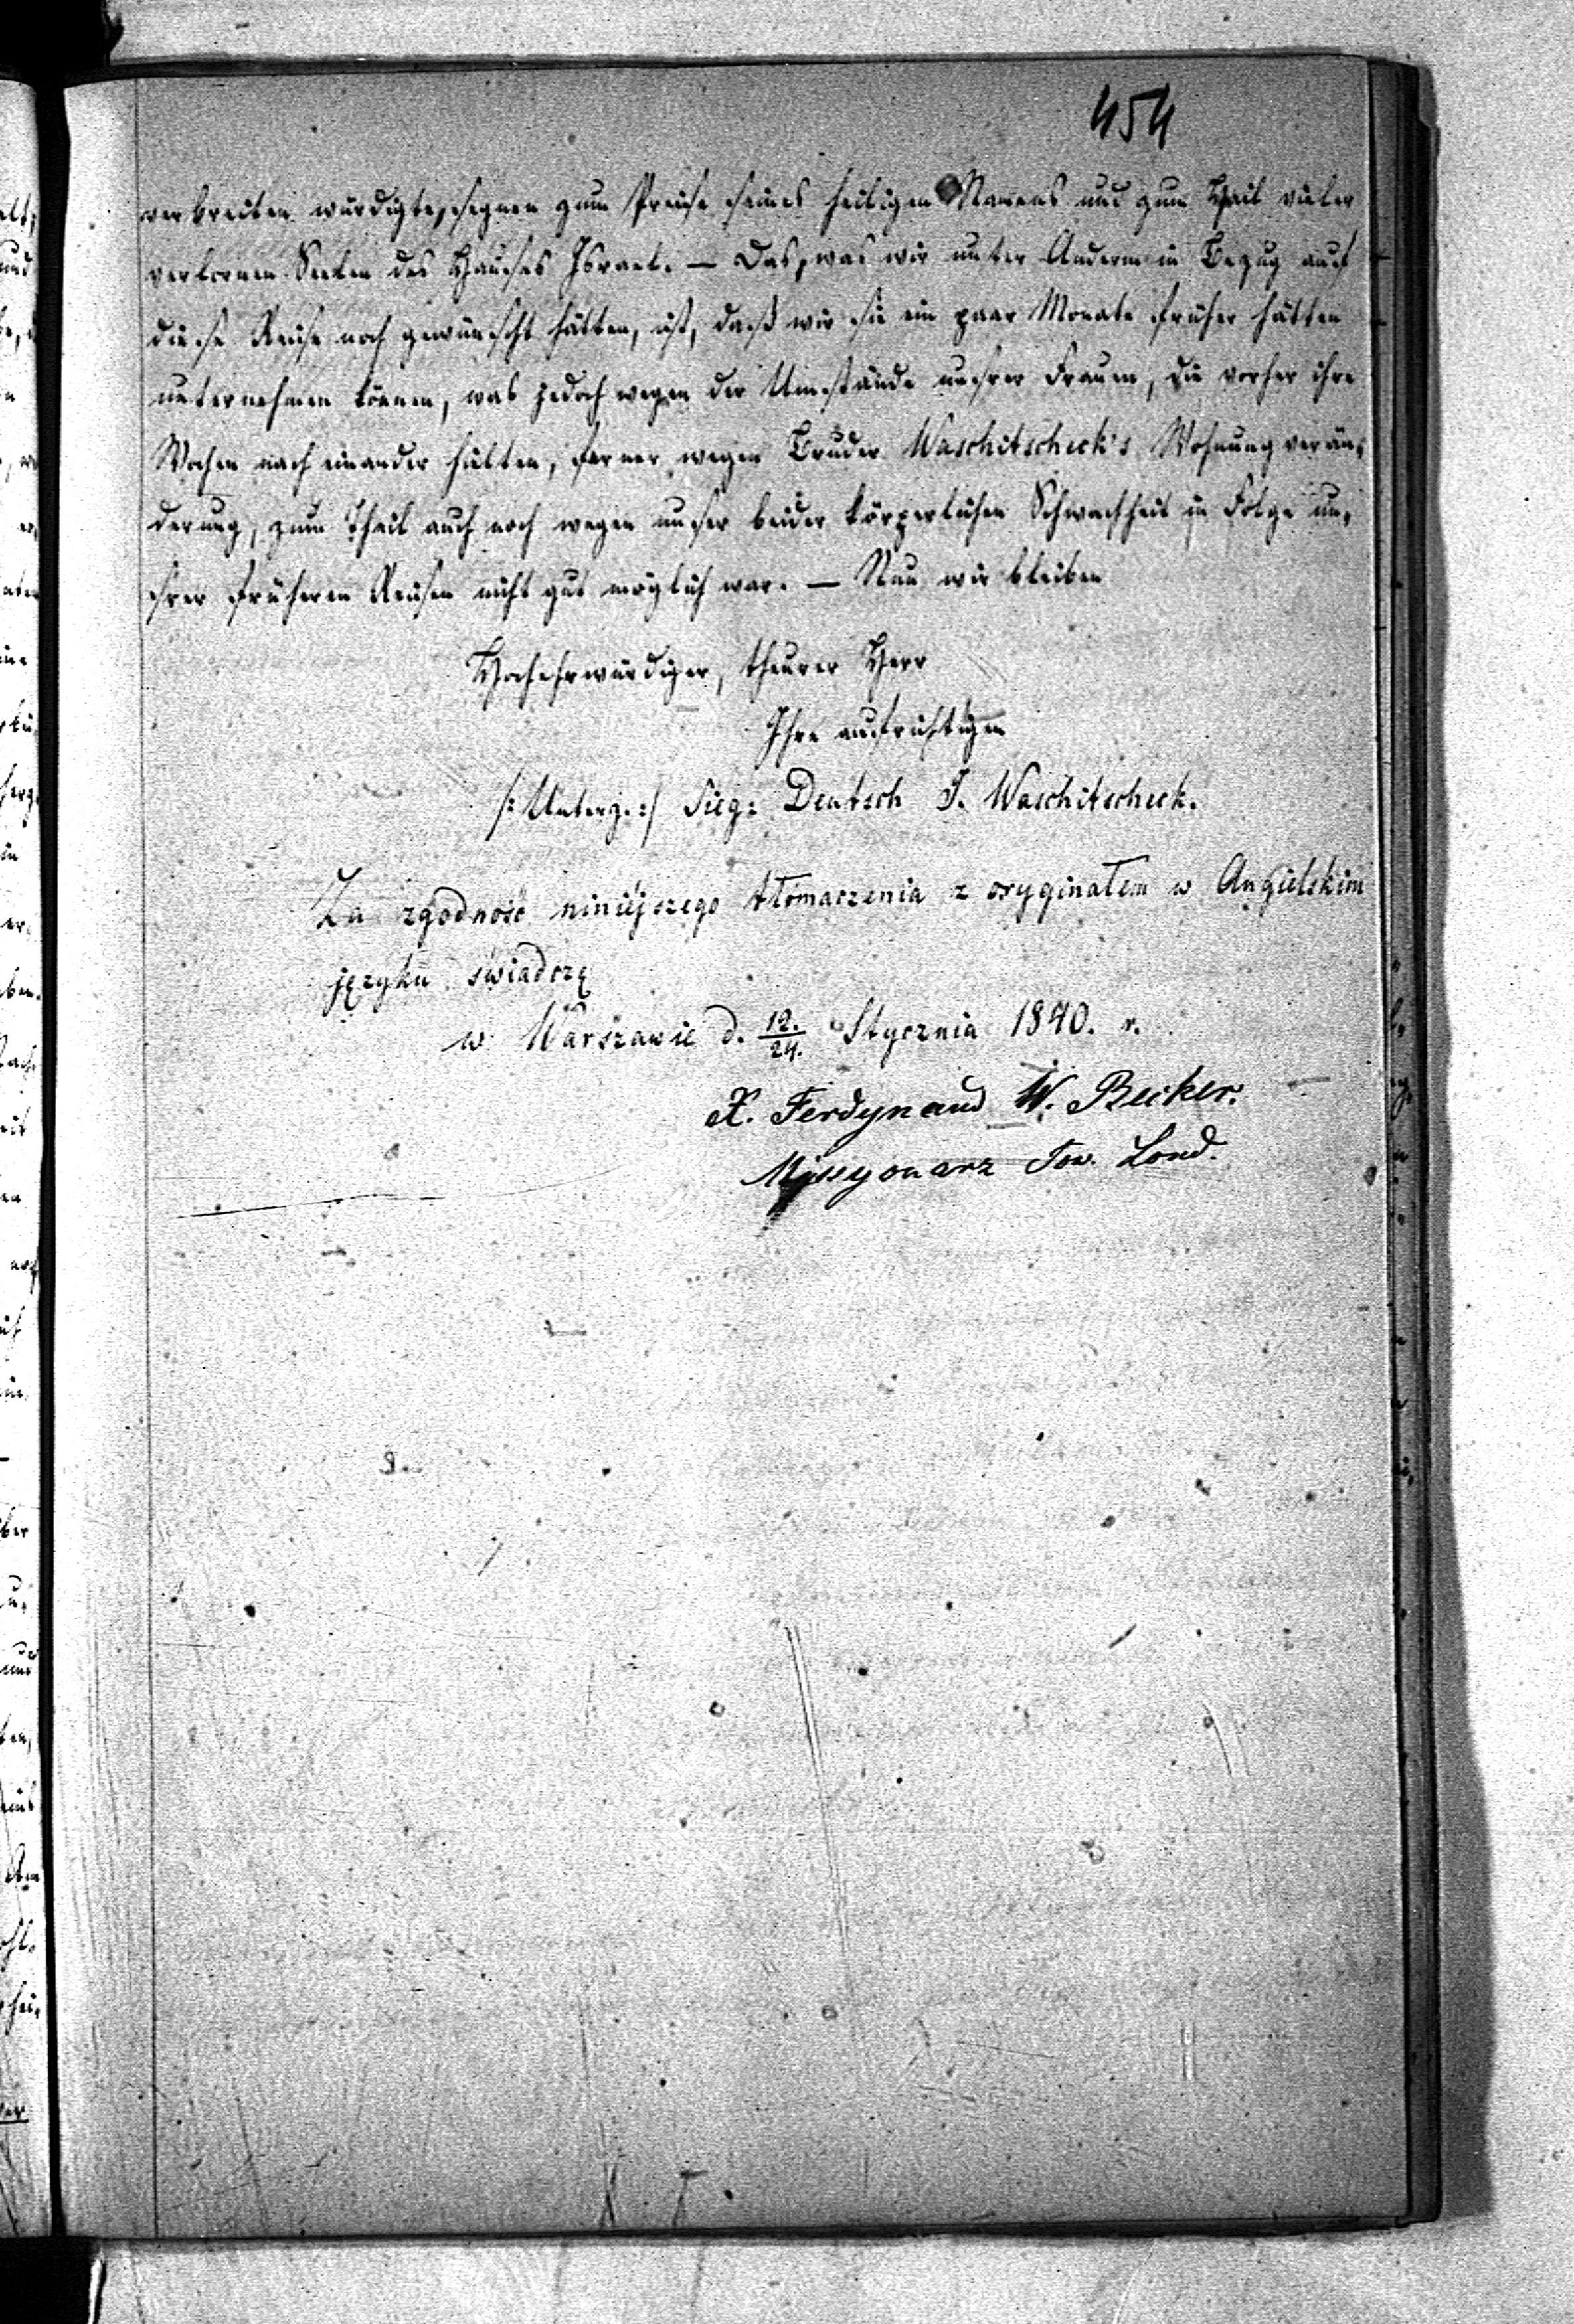 454
verbreiten würdigte, segnen zum Preise seines heiligen Namens und zum Heil vieler
verlornen Seelen des Hauses Israel. — Das, was wir unter Anderm in Bezug auf
diese Reise noch gewünscht hätten, ist, daß wir sie ein paar Monate früher hätten
unternehmen können, was jedoch wegen der Umstände unsrer Frauen, die vorher ihre
Wochen nach einander hielten, ferner wegen Bruder Waschitscheck's Wohnung verän-
derung, zum Theil auch noch wegen unser beider körperlichen Schwachheit in Folge un-
srer früheren Reisen nicht gut möglich war. — Nun wir bleiben
Hochehrwürdiger, theurer Herr
Ihre aufrichtigen
/: Unterz. :/ Sieg: Deutsch J. Waschitscheck.
Za zgodność niniéjszego tłomaczenia z oryginałem w Angielskim
języku świadczę
w Warszawie d. 12./24. Stycznia 1840. r.
X. Ferdynand W. Becker.
Missyonarz Tow. Lond.